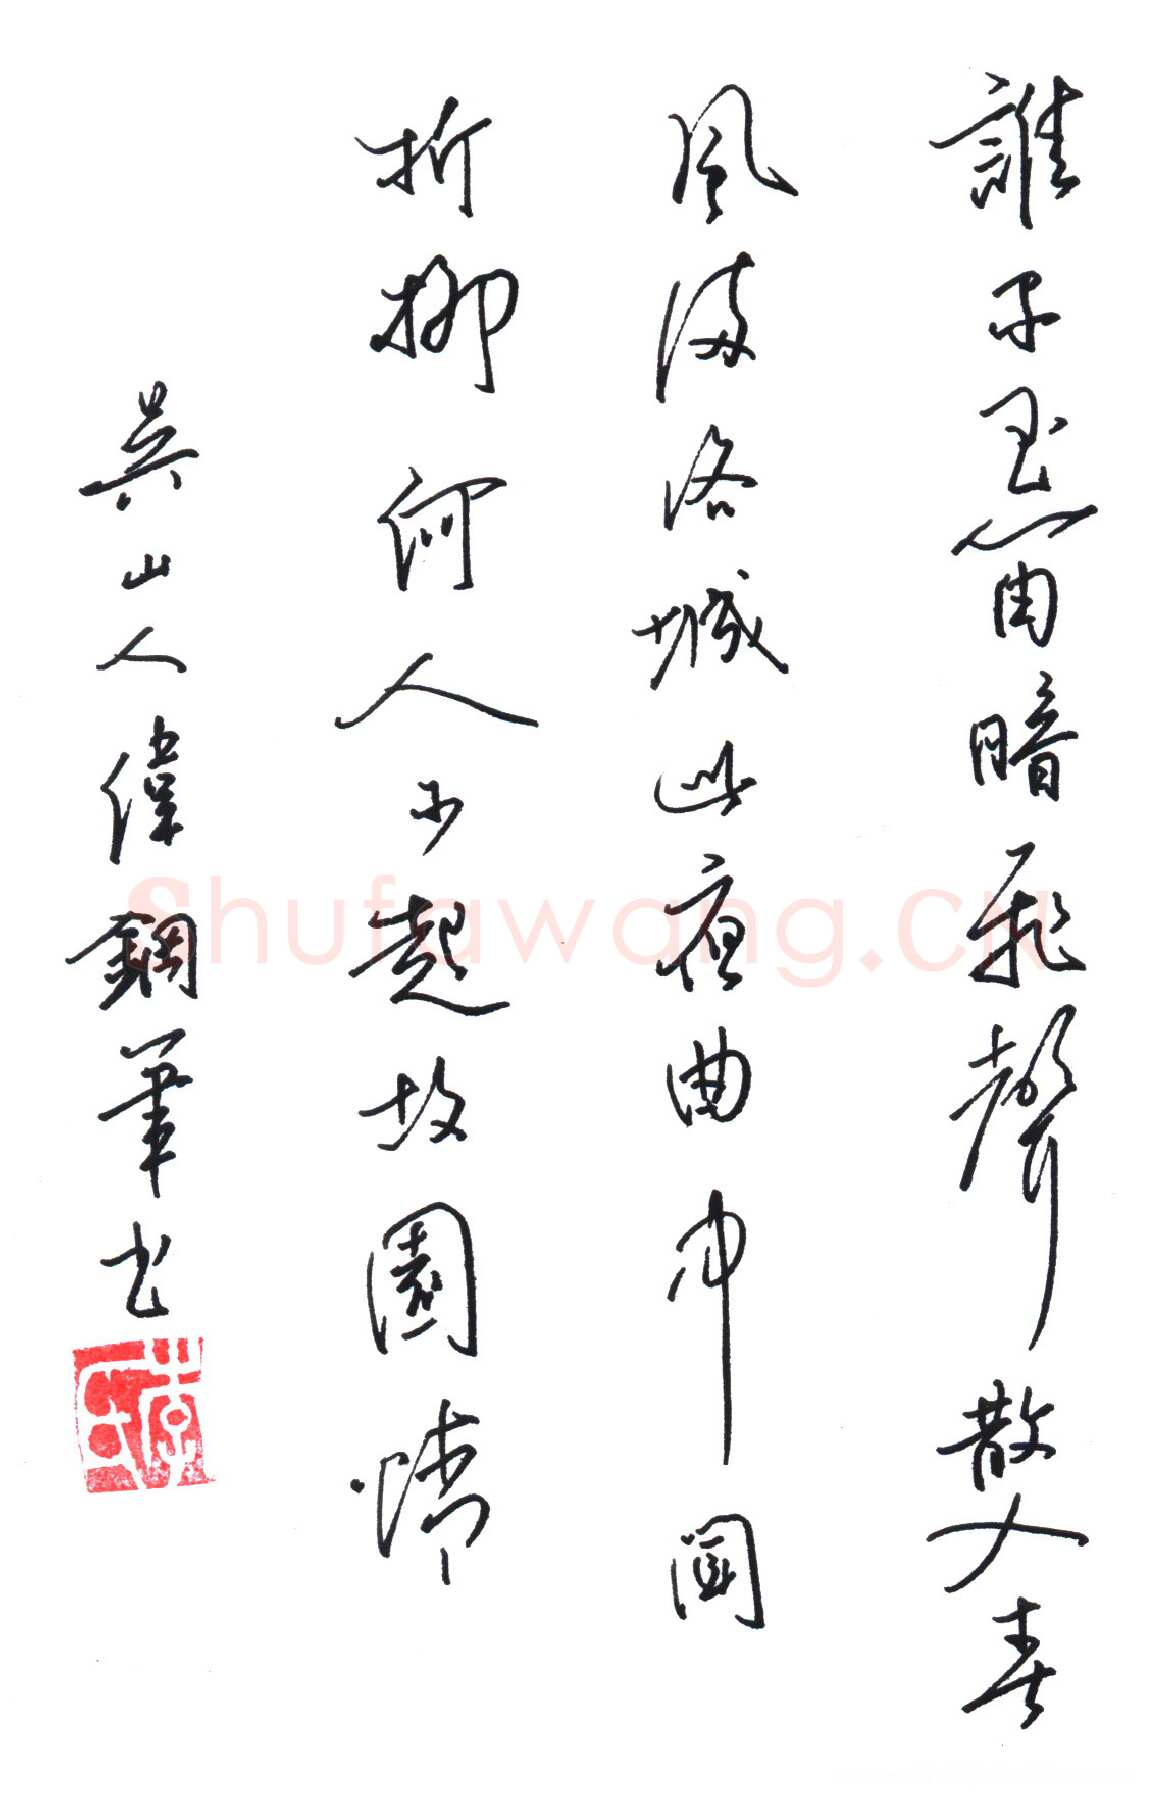 誰家玉笛暗飛聲散入春
風滿洛城此夜曲中聞
折柳何人不起故園情
吳山人偉鋼筆書
李氏
Shufawang.CN